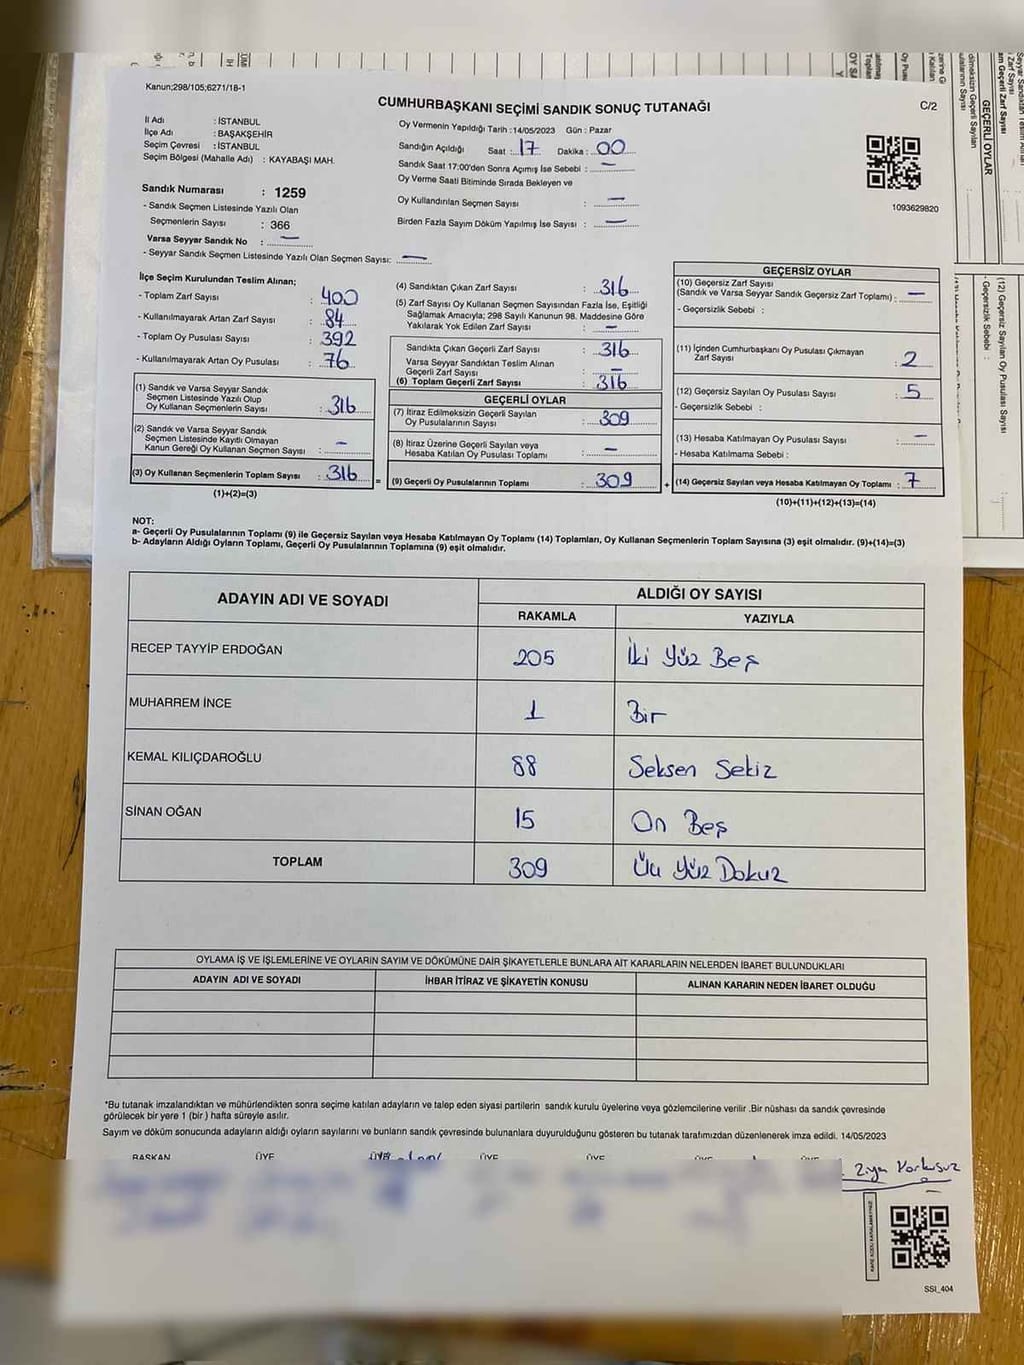 Kanun;298/105;6271/18-1
CUMHURBAŞKANI SEÇİMİ SANDIK SONUÇ TUTANAĞI
C/2
İl Adı : İSTANBUL
İlçe Adı : BAŞAKŞEHİR
Seçim Çevresi : İSTANBUL
Seçim Bölgesi (Mahalle Adı) : KAYABAŞI MAH.
Sandık Numarası : 1259
- Sandık Seçmen Listesinde Yazılı Olan
Seçmenlerin Sayısı : 366
Varsa Seyyar Sandık No : —
- Seyyar Sandık Seçmen Listesinde Yazılı Olan Seçmen Sayısı: —
Oy Vermenin Yapıldığı Tarih :14/05/2023 Gün : Pazar
Sandığın Açıldığı Saat : 17 Dakika : 00
Sandık Saat 17:00'den Sonra Açılmış İse Sebebi : —
Oy Verme Saati Bitiminde Sırada Bekleyen ve
Oy Kullandırılan Seçmen Sayısı : —
Birden Fazla Sayım Döküm Yapılmış İse Sayısı : —
1093629820
İlçe Seçim Kurulundan Teslim Alınan;
- Toplam Zarf Sayısı : 400
- Kullanılmayarak Artan Zarf Sayısı : 84
- Toplam Oy Pusulası Sayısı : 392
- Kullanılmayarak Artan Oy Pusulası : 76
(1) Sandık ve Varsa Seyyar Sandık
Seçmen Listesinde Yazılı Olup
Oy Kullanan Seçmenlerin Sayısı : 316
(2) Sandık ve Varsa Seyyar Sandık
Seçmen Listesinde Kayıtlı Olmayan
Kanun Gereği Oy Kullanan Seçmen Sayısı : —
(3) Oy Kullanan Seçmenlerin Toplam Sayısı : 316
(1)+(2)=(3)
(4) Sandıktan Çıkan Zarf Sayısı : 316
(5) Zarf Sayısı Oy Kullanan Seçmen Sayısından Fazla İse, Eşitliği
Sağlamak Amacıyla; 298 Sayılı Kanunun 98. Maddesine Göre
Yakılarak Yok Edilen Zarf Sayısı : —
Sandıkta Çıkan Geçerli Zarf Sayısı : 316
Varsa Seyyar Sandıktan Teslim Alınan
Geçerli Zarf Sayısı : —
(6) Toplam Geçerli Zarf Sayısı : 316
GEÇERLİ OYLAR
(7) İtiraz Edilmeksizin Geçerli Sayılan
Oy Pusulalarının Sayısı : 309
(8) İtiraz Üzerine Geçerli Sayılan veya
Hesaba Katılan Oy Pusulası Toplamı : —
= (9) Geçerli Oy Pusulalarının Toplamı : 309
GEÇERSİZ OYLAR
(10) Geçersiz Zarf Sayısı
(Sandık ve Varsa Seyyar Sandık Geçersiz Zarf Toplamı) : —
- Geçersizlik Sebebi :
(11) İçinden Cumhurbaşkanı Oy Pusulası Çıkmayan
Zarf Sayısı : 2
(12) Geçersiz Sayılan Oy Pusulası Sayısı : 5
- Geçersizlik Sebebi :
(13) Hesaba Katılmayan Oy Pusulası Sayısı : —
- Hesaba Katılmama Sebebi :
+ (14) Geçersiz Sayılan veya Hesaba Katılmayan Oy Toplamı : 7
(10)+(11)+(12)+(13)=(14)
NOT:
a- Geçerli Oy Pusulalarının Toplamı (9) ile Geçersiz Sayılan veya Hesaba Katılmayan Oy Toplamı (14) Toplamları, Oy Kullanan Seçmenlerin Toplam Sayısına (3) eşit olmalıdır. (9)+(14)=(3)
b- Adayların Aldığı Oyların Toplamı, Geçerli Oy Pusulalarının Toplamına (9) eşit olmalıdır.
ADAYIN ADI VE SOYADI
ALDIĞI OY SAYISI
RAKAMLA YAZIYLA
RECEP TAYYİP ERDOĞAN 205 İki Yüz Beş
MUHARREM İNCE 1 Bir
KEMAL KILIÇDAROĞLU 88 Seksen Sekiz
SİNAN OĞAN 15 On Beş
TOPLAM 309 Üç Yüz Dokuz
OYLAMA İŞ VE İŞLEMLERİNE VE OYLARIN SAYIM VE DÖKÜMÜNE DAİR ŞİKAYETLERLE BUNLARA AİT KARARLARIN NELERDEN İBARET BULUNDUKLARI
ADAYIN ADI VE SOYADI İHBAR İTİRAZ VE ŞİKAYETİN KONUSU ALINAN KARARIN NEDEN İBARET OLDUĞU
*Bu tutanak imzalandıktan ve mühürlendikten sonra seçime katılan adayların ve talep eden siyasi partilerin sandık kurulu üyelerine veya gözlemcilerine verilir .Bir nüshası da sandık çevresinde
görülecek bir yere 1 (bir ) hafta süreyle asılır.
Sayım ve döküm sonucunda adayların aldığı oyların sayılarını ve bunların sandık çevresinde bulunanlara duyurulduğunu gösteren bu tutanak tarafımızdan düzenlenerek imza edildi. 14/05/2023
BAŞKAN ÜYE ÜYE ÜYE ÜYE ÜYE ÜYE
Ziya Korkusuz
SSI_404
GEÇERLİ OYLAR
(12) Geçersiz Sayılan Oy Pusulası Sayısı
- Geçersizlik Sebebi :